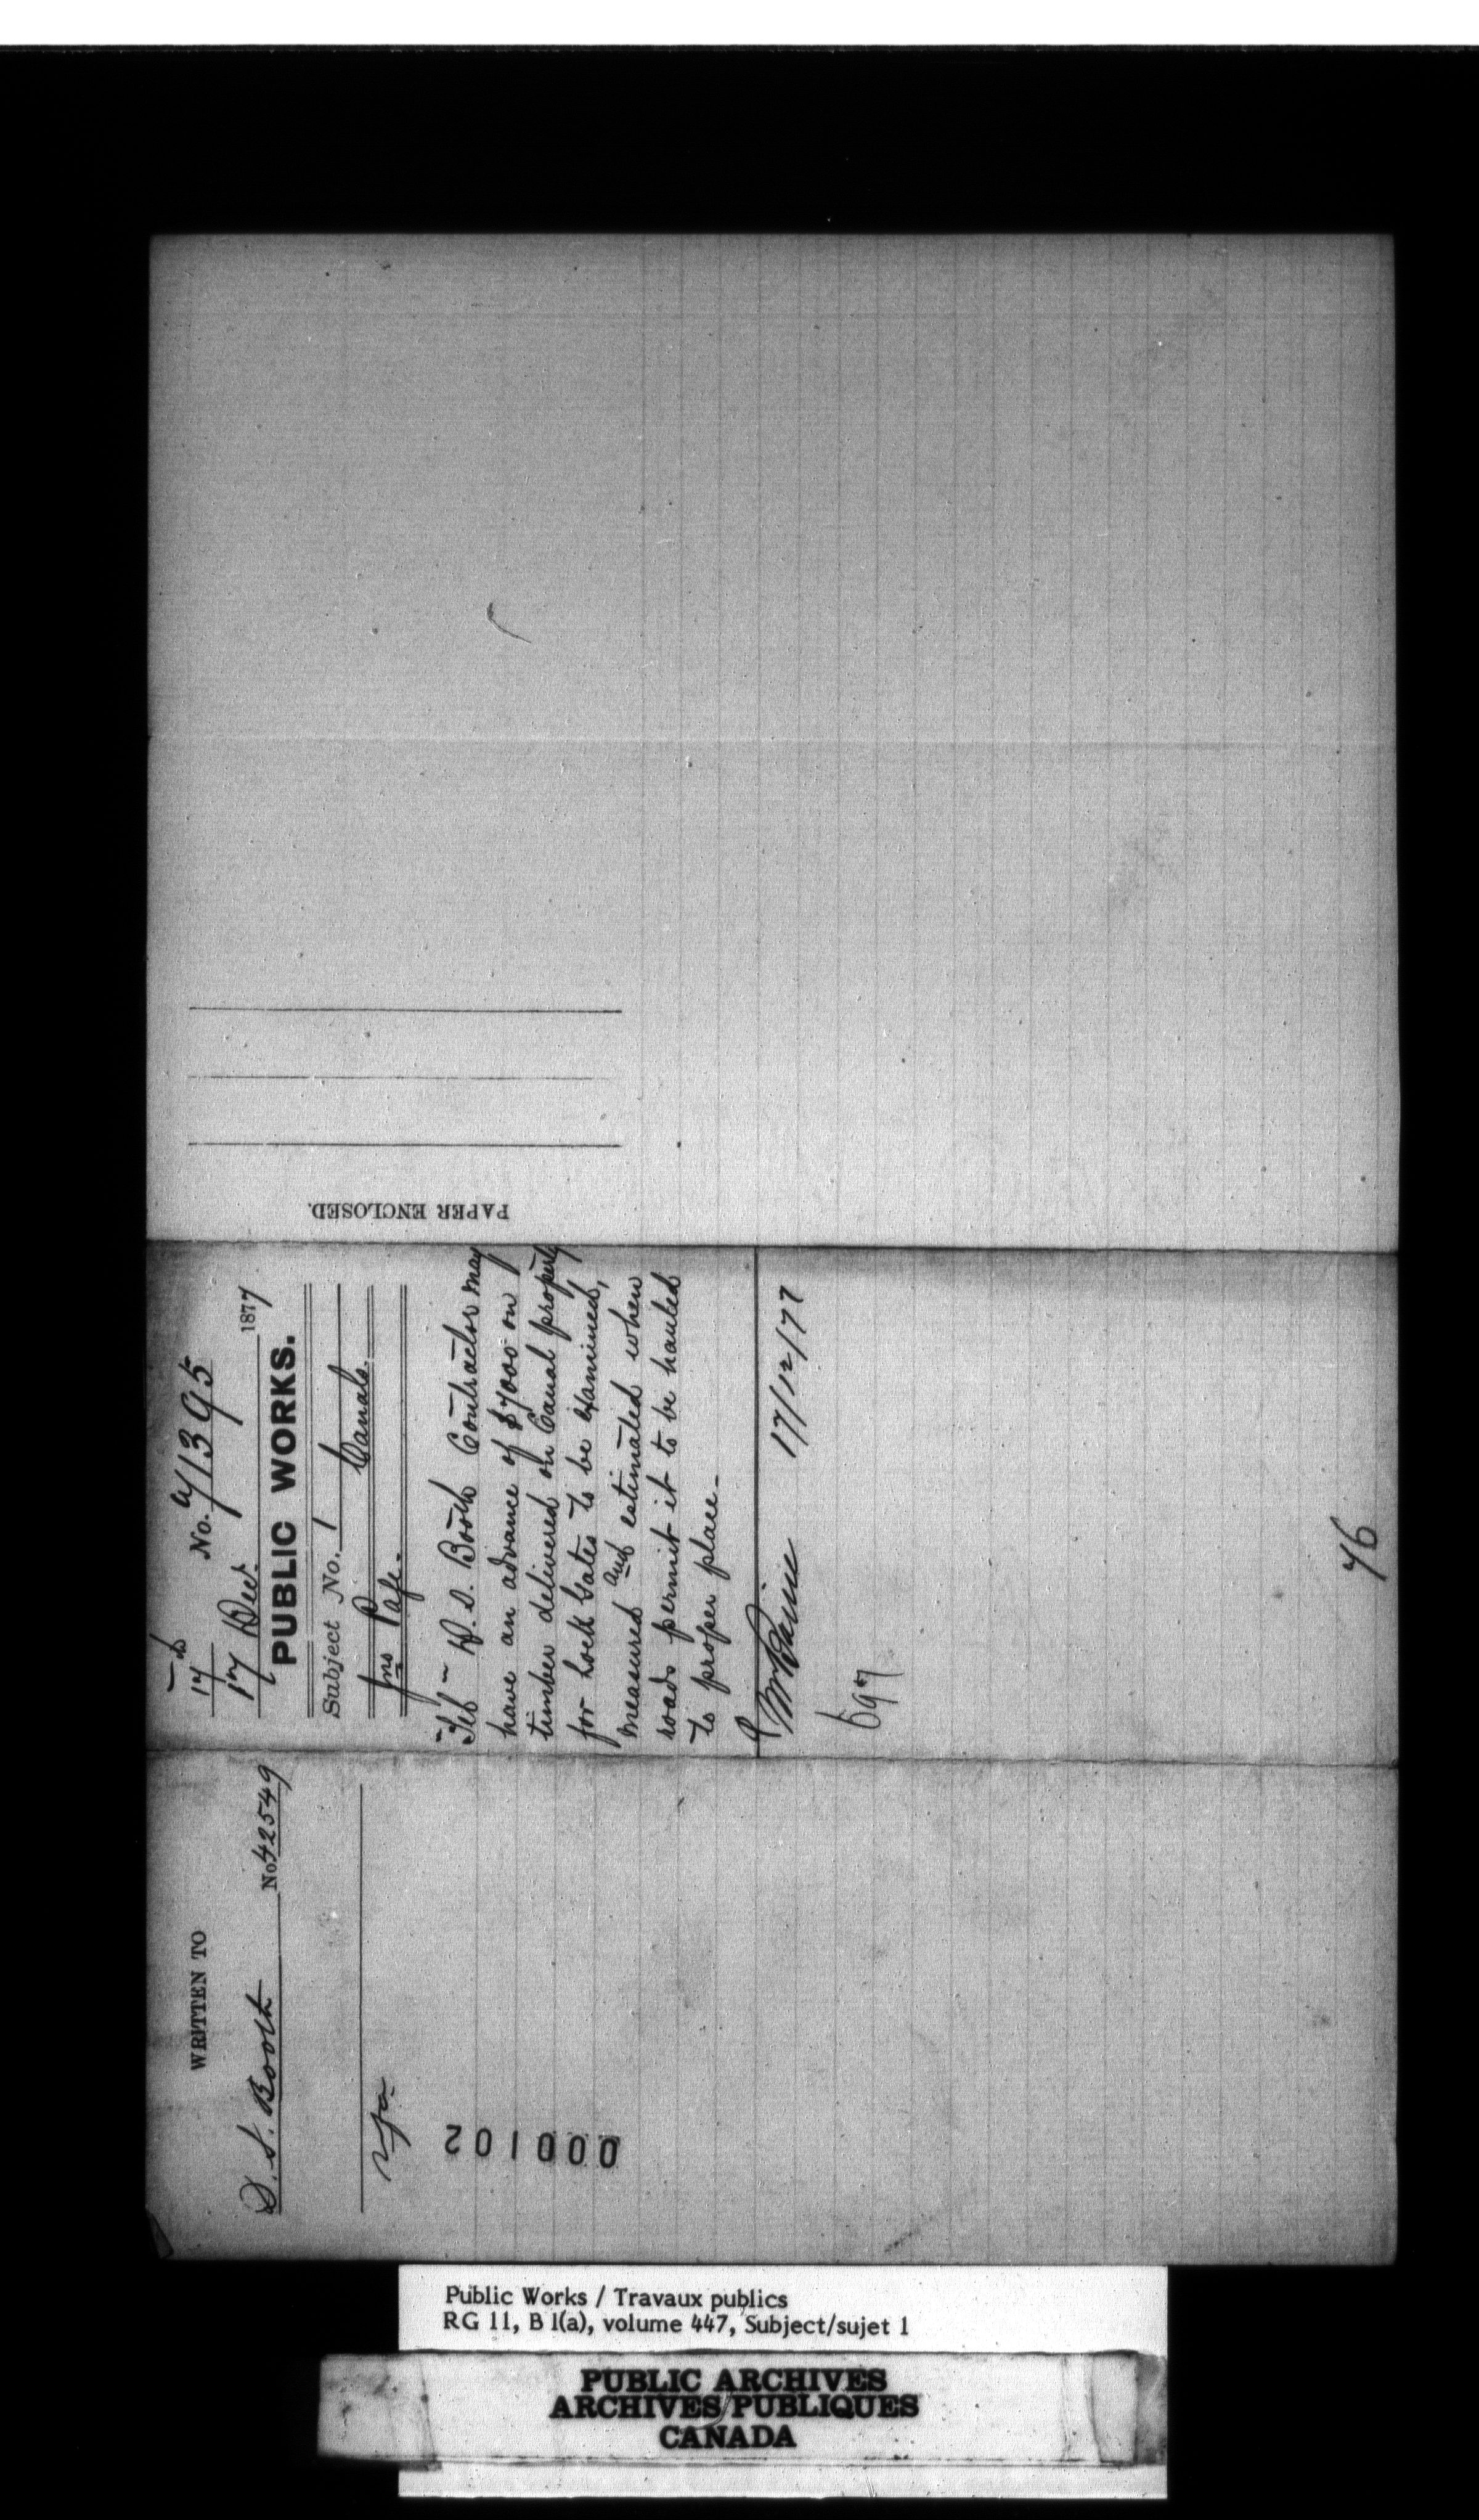 17
No. 71395
17 Dec. 1877
PUBLIC WORKS.
Subject No. 1
Canals.
Jno Page.
D. S. Booth Contractor may
have an advance of $7000 on
timber delivered on Canal property
for Lock Gates to be examined,
measured and estimated when
roads permit it to be hauled
to proper place.
17/12/77
697
46
WRITTEN TO
D. S. Booth No 42549
000102
PAPER ENCLOSED.
Public Works / Travaux publics
RG 11, B 1(a), volume 447, Subject/sujet 1
PUBLIC ARCHIVES
ARCHIVES PUBLIQUES
CANADA